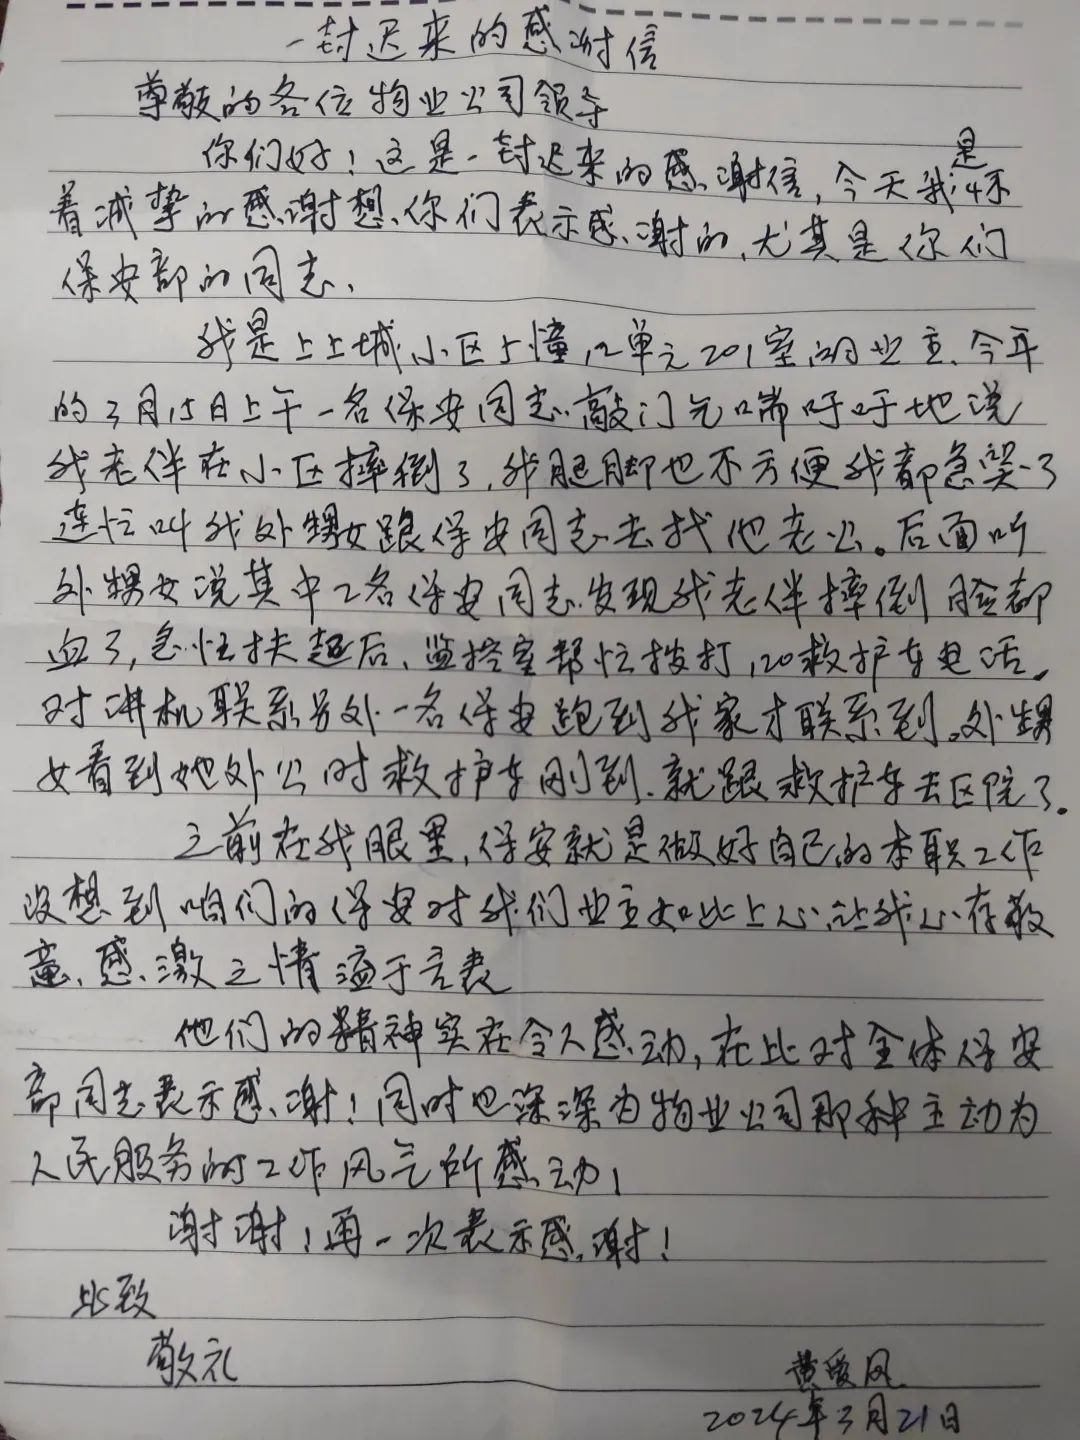 一封迟来的感谢信
尊敬的各位物业公司领导
你们好！这是一封迟来的感谢信，今天我是怀
着诚挚的感谢想、你们表示感谢的，尤其是你们
保安部的同志、
我是上上城小区5幢12单元201室的业主、今年
的3月15日上午一名保安同志敲门气喘吁吁地说
我老伴在小区摔倒了，我腿脚也不方便我都急哭了
连忙叫我外甥女跟保安同志去找他老公。后面听
外甥女说其中2名保安同志发现我老伴摔倒脸都
血了，急忙扶起后、监控室帮忙拨打120救护车电话，
对讲机联系另外一名保安跑到我家才联系到。外甥
女看到她外公时救护车刚到、就跟救护车去医院了。
之前在我眼里，保安就是做好自己的本职工作
没想到咱们的保安对我们业主如此上心，让我心存敬
意、感激之情溢于言表
他们的精神实在令人感动，在此对全体保安
部同志表示感谢！同时也深深为物业公司那种主动为
人民服务的工作风气所感动！
谢谢！再一次表示感谢！
此致
敬礼
黄爱凤
2024年3月21日